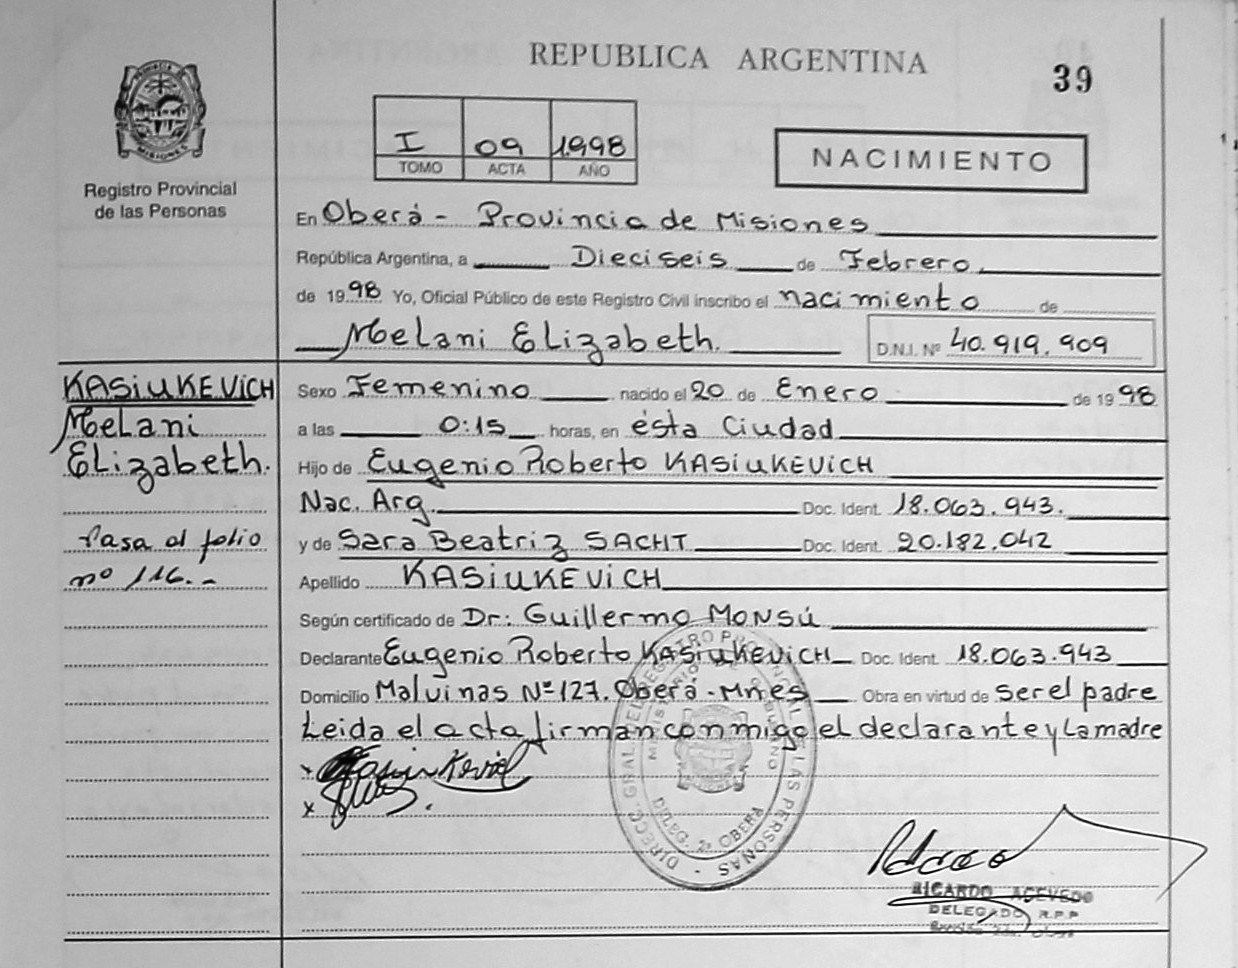 REPUBLICA ARGENTINA
39
PROVINCIA DE MISIONES
Registro Provincial
de las Personas
I 09 1998
TOMO ACTA AÑO
NACIMIENTO
En Oberá - Provincia de Misiones
República Argentina, a Dieciseis de Febrero
de 1998 Yo, Oficial Público de este Registro Civil inscribo el nacimiento de
Melani Elizabeth. D.N.I. Nº 40.919.909
KASIUKEVICH
Melani
Elizabeth.
Pasa al folio
nº 116.-
Sexo Femenino nacido el 20 de Enero de 1998
a las 0:15 horas, en ésta Ciudad
Hijo de Eugenio Roberto KASIUKEVICH
Nac. Arg. Doc. Ident. 18.063.943.
y de Sara Beatriz SACHT Doc. Ident. 20.182.042
Apellido KASIUKEVICH
Según certificado de Dr: Guillermo MONSÚ
Declarante Eugenio Roberto KASIUKEVICH Doc. Ident. 18.063.943
Domicilio Malvinas Nº 127. Oberá - Mnes Obra en virtud de ser el padre
Leida el acta firman conmigo el declarante y la madre
DELEG. 2ª OBERÁ
RICARDO ACEVEDO
DELEGADO R.P.P